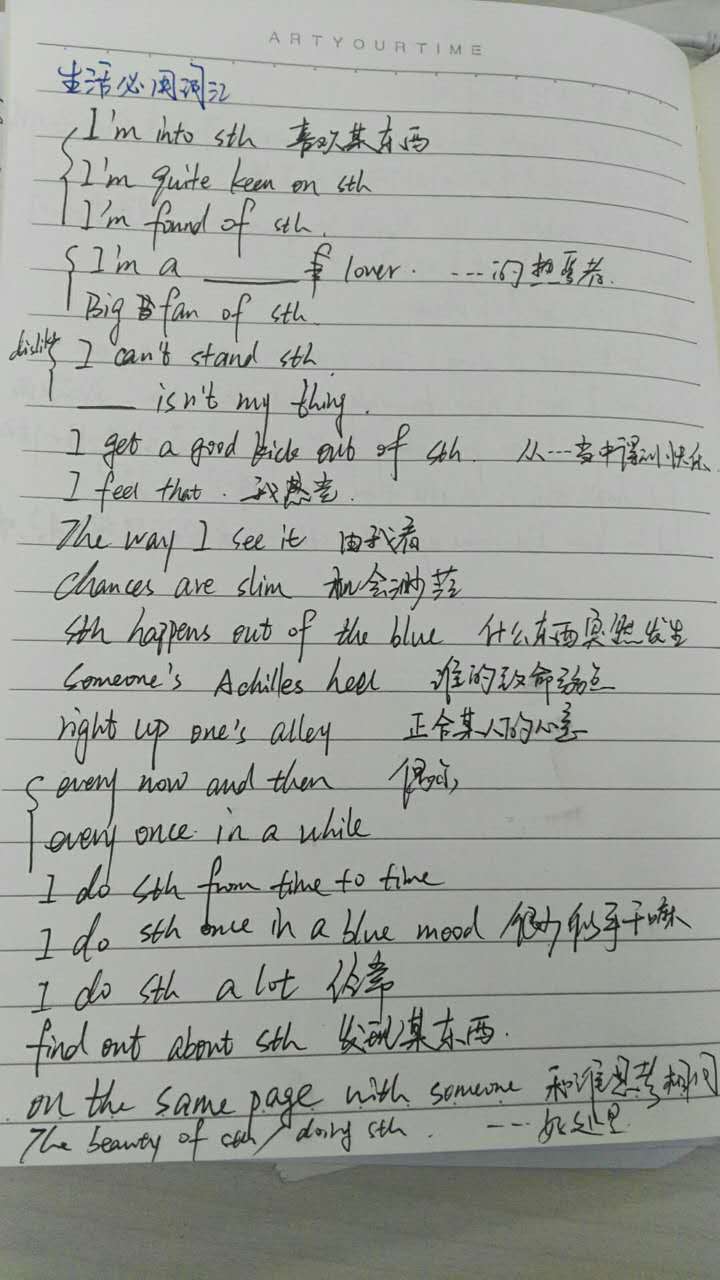 ARTYOURTIME
生活必用词汇
I'm into sth 喜欢某东西
I'm quite keen on sth
I'm found of sth.
I'm a ______ lover. ---的热爱者.
Big fan of sth.
dislike I can't stand sth
____ isn't my thing.
I get a good kick out of sth. 从---当中得到快乐.
I feel that. 我感觉.
The way I see it 由我看
Chances are slim 机会渺茫
sth happens out of the blue 什么东西突然发生
Someone's Achilles heel 谁的致命弱点
right up one's alley 正合某人的心意
every now and then 偶尔
every once in a while
I do sth from time to time
I do sth once in a blue mood 很少做某事干嘛
I do sth a lot 经常
find out about sth 发现某东西.
on the same page with someone 和谁思考相同
The beauty of sth / doing sth. ---好处是